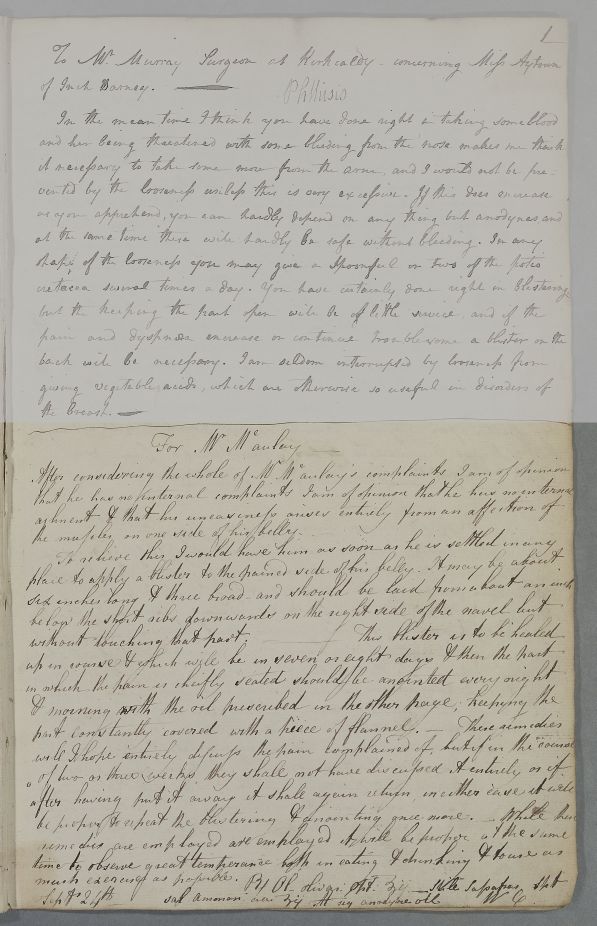 1
To Mr. Murray Surgeon at Kirkcaldy - concerning Miss Aytoun
of Inch Darney.
Phthisis
In the mean time I think you have done right in taking some blood
and her being threatened with some bleeding from the nose makes me think
it necessary to take some more from the arm, and I would not be pre-
vented by the looseness unless this is very excessive. If this does increase
as you apprehend, you can hardly depend on any thing but anodynes and
at the same time these will hardly be safe without bleeding. In any
shape of the looseness you may give a spoonful or two of the potio
cretacea several times a day. You have certainly done right in blistering
but the keeping the part open will be of little service, and if the
pain and dyspnœa encrease or continue troublesome a blister on the
back will be necessary. I am seldom interrupted by looseness from
giving vegetable acids, which are otherwise so useful in disorders of
the breast.
For Mr. McAulay
After considering the whole of Mr. McAulay's complaints I am of opinion
that he has no internal complaints I am of opinion that he has no internal
ailment & that his uneasiness arises entirely from an affection of
the muscles on one side of his belly.
To relieve this I would have him as soon as he is settled in any
place to apply a blister to the pained side of his belly. It may be about
six inches long & three broad and should be laid from about an inch
below the short ribs downwards on the right side of the navel but
without touching that part. This blister is to be healed
up in course & which will be in seven or eight days & then the part
in which the pain is chiefly seated should be anointed every night
& morning with the oil prescribed in the other page; keeping the
part constantly covered with a piece of flannel. - These remedies
will I hope entirely discuss the pain complained of, but if in the course
of two or three weeks they shall not have discussed it entirely or if
after having put it away it shall again return, in either case it will
be proper to repeat the blistering & anointing once more. - While these
remedies are employed are employed it will be proper at the same
time to observe great temperance both in eating & drinking & to use as
much exercise as possible.
Septr 24th W C.